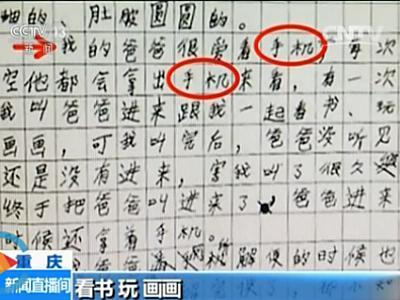 CCTV 13
CNTV
坤的、肚皮圆圆的。
我的爸爸很爱看手机,每次
空他都会拿出手机来看,有一次
我叫爸爸进来跟我一起看书、玩
画画,可我叫完后,爸爸没听见
还是没有进来,害我叫了很久
终于把爸爸叫进来了,爸爸进来
时候还拿着手机。
的时候也
重庆
新闻直播间
看书 玩 画画